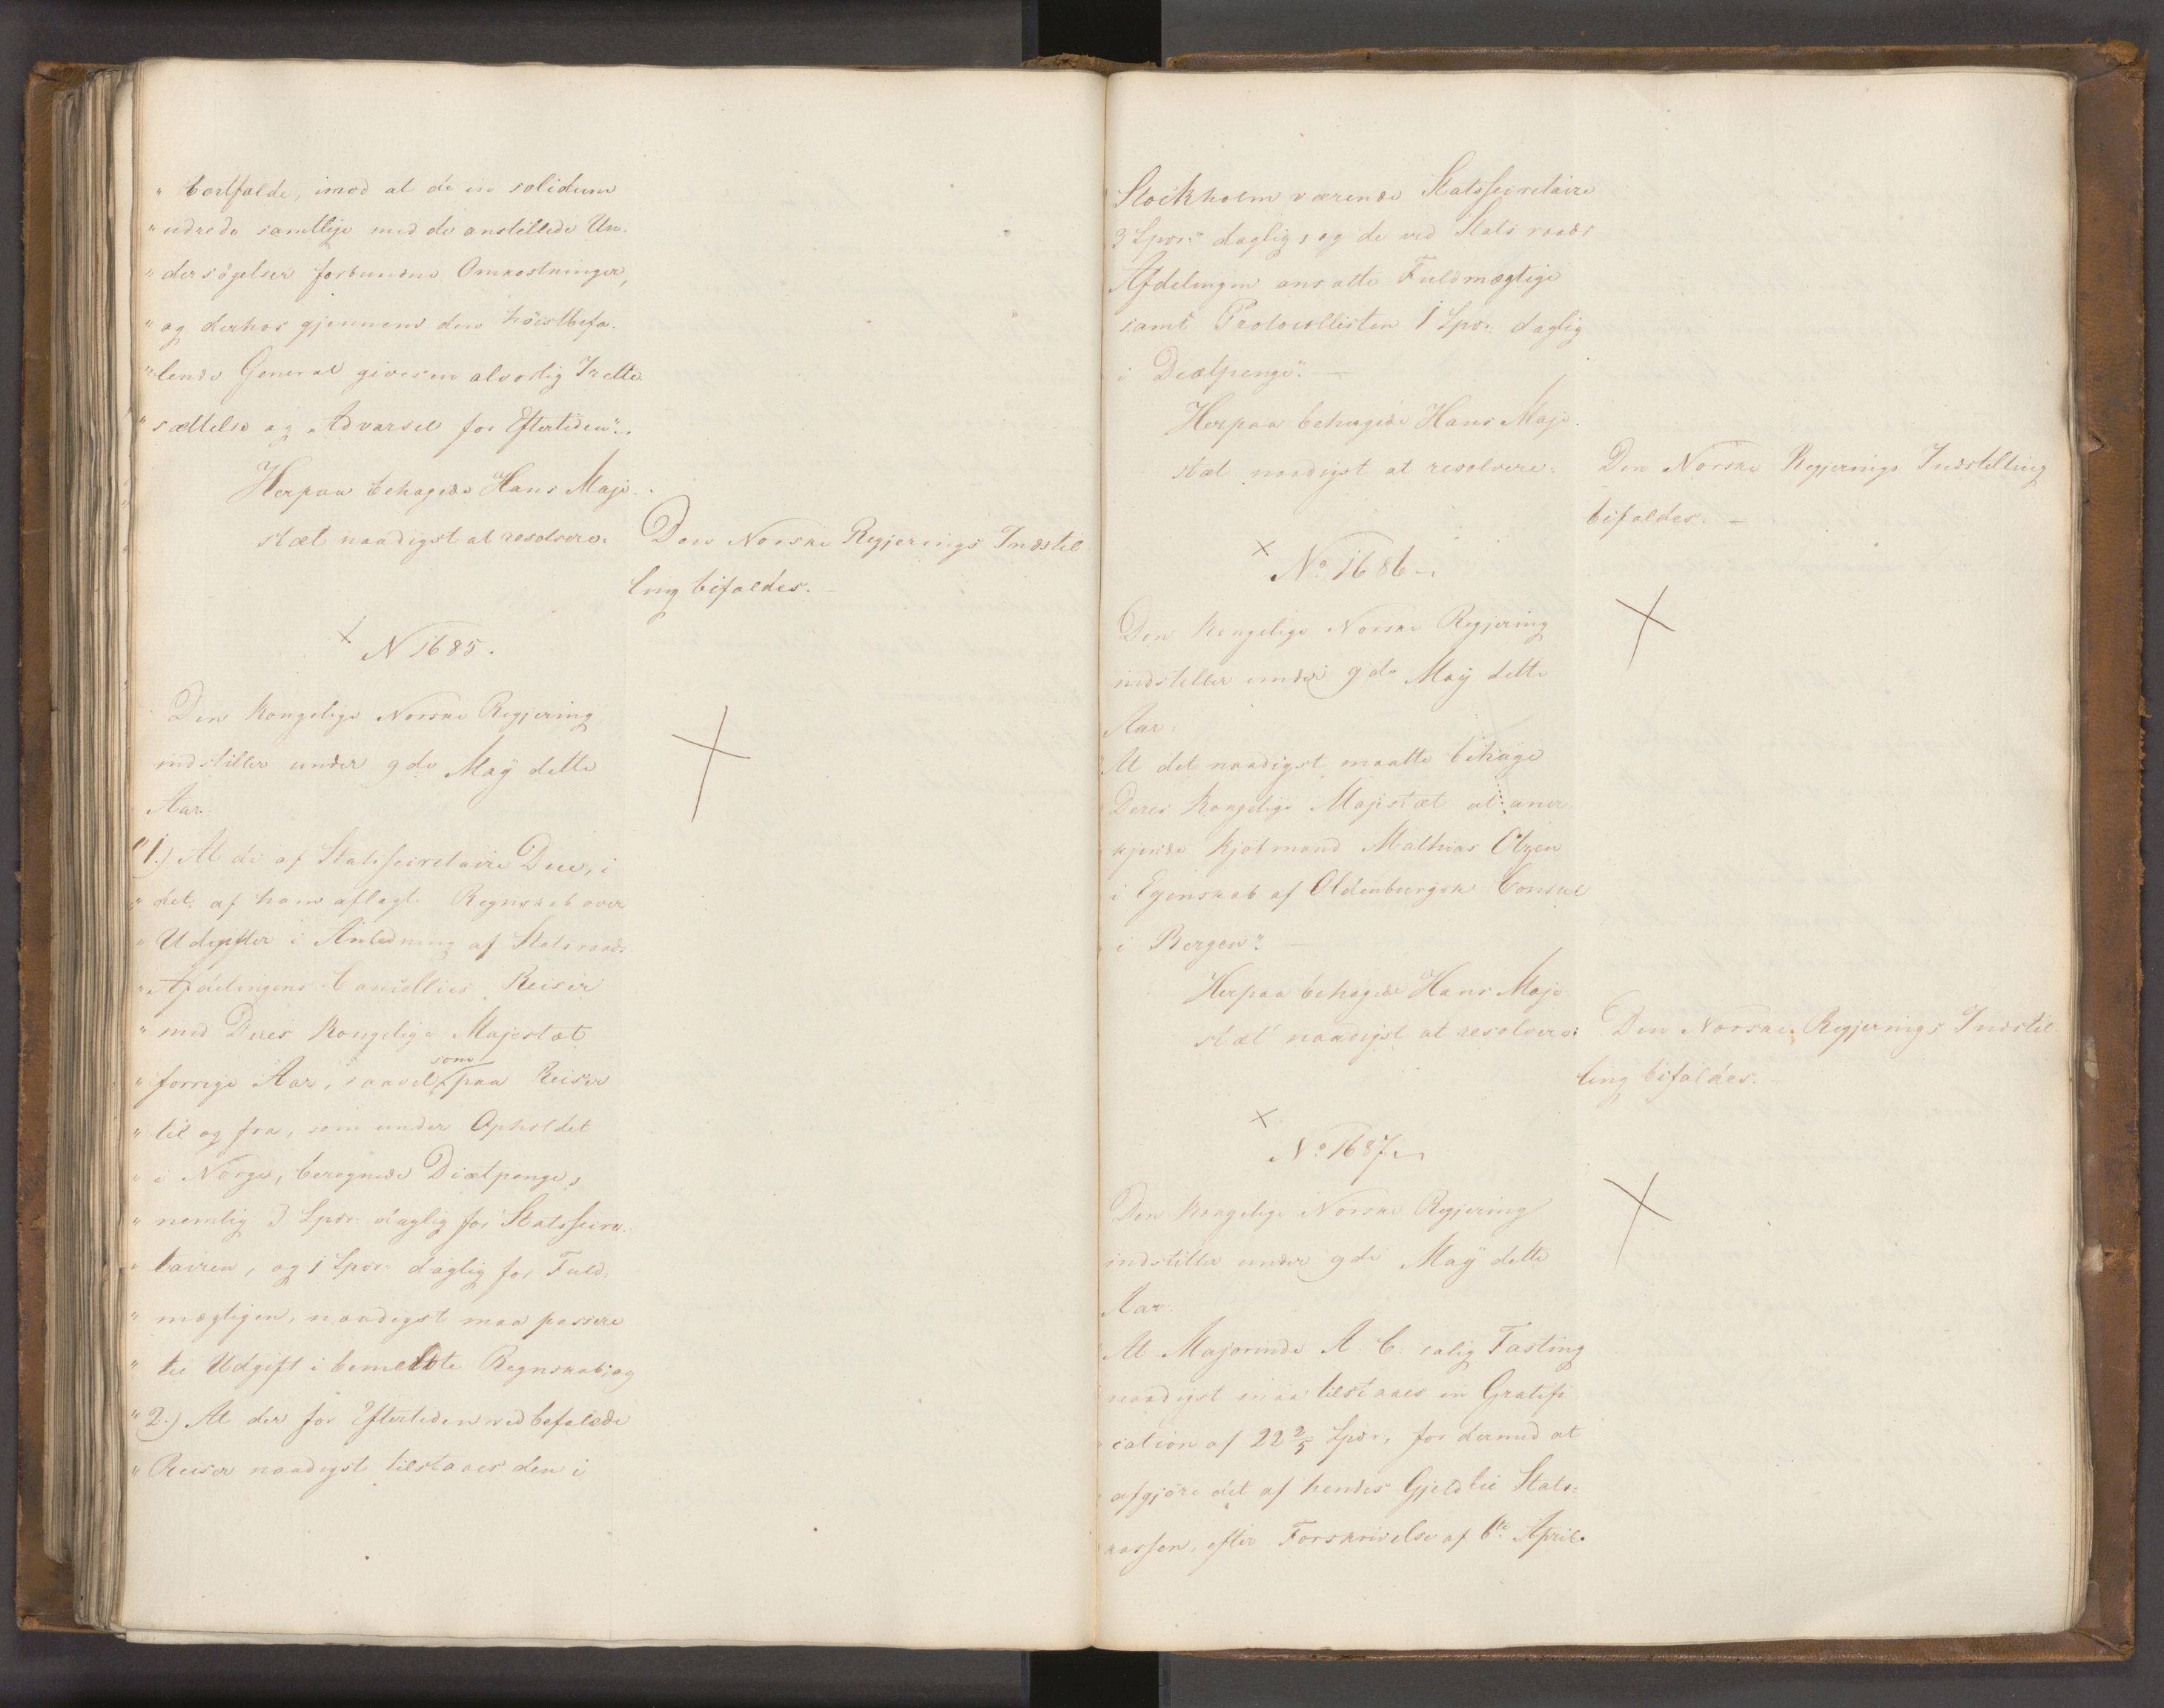 „ bortfalde, imod at de in solidum
„ udrede samtlige med de anstillede Un-
„ dersögelser forbundne Omkostninger,
„ og derhos gjennem den höistbefa-
„ lende General gives en alvorlig Irette-
„ sættelse og Advarsel for Eftertiden“.
Herpaa behagede Hans Maje-
stæt naadigst at resolvere: Den Norske Regjerings Indstil
ling bifaldes. –
× N 1685.
Den kongelige Norske Regjering
indstiller under 9de Maÿ dette
Aar:
„1.) At de af Statssecretaire Due, i
„ det af ham aflagte Regnskab over
„ Udgifter i Anledning af Statsraads
„ Afdelingens Cancellies Reiser
„ med Deres Kongelige Majestæt
„ forrige Aar, saavel som paa Reiser
„ til og fra, som under Opholdet
„ i Norge, beregnede Diætpenge,
„ nemlig 3 Spdr. daglig for Statssecre-
„ tairen, og 1 Spdr. daglig for Fuld-
„ mægtigen, naadigst maa passere
„ til Udgift i bemeldte Regnskab; og
„ 2.) At der for Eftertiden ved befalede
„ Reiser naadigst tilstaaes den i
Stockholm værende Statssecretaire
3 Spdr. daglig, og de ved Stats raads
Afdelingen ansatte Fuldmægtige
samt Protocollisten 1 Spdr. daglig
i Diætpenge“. –
Herpaa behagede Hans Maje-
stæt naadigst at resolvere: Den Norske Regjerings Indstilling
bifaldes. –
× No. 1686
Den kongelige Norske Regjering
indstiller under 9de Maÿ dette
Aar:
„ At det naadigst maatte behage
Deres Kongelige Majestæt at aner-
kjende Kjöbmand Mathias Olzen
i Egenskab af Oldenburgsk Consul
i Bergen“. –
Herpaa behagede Hans Maje-
stæt naadigst at resolvere: Den Norske Regjerings Indstil
ling bifaldes. –
× No. 1687
Den kongelige Norske Regjering
indstiller under 9de Maÿ dette
Aar:
„ At Majorinde A. C. salig Fasting
naadigst maa tilstaaes en Gratifi
cation af 22 2/5 Spdr, for dermed at
afgjöre det af hendes Gjeld til Stats-
kassen, efter Forskrivelse af 6te April